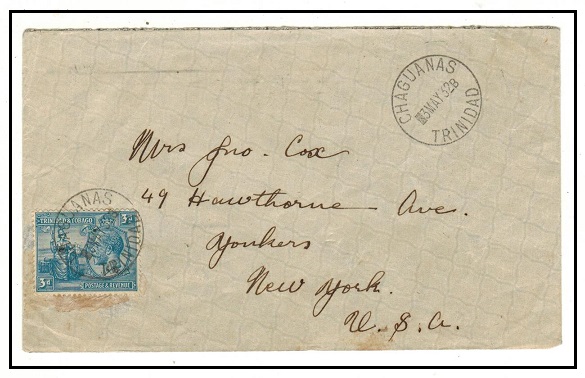 CHAGUANAS
3MAY28
TRINIDAD
Mrs Jno. Cox
49 Hawthorne Ave.
Yonkers
New York.
U. S. A.
TRINIDAD & TOBAGO 3d
3d POSTAGE & REVENUE